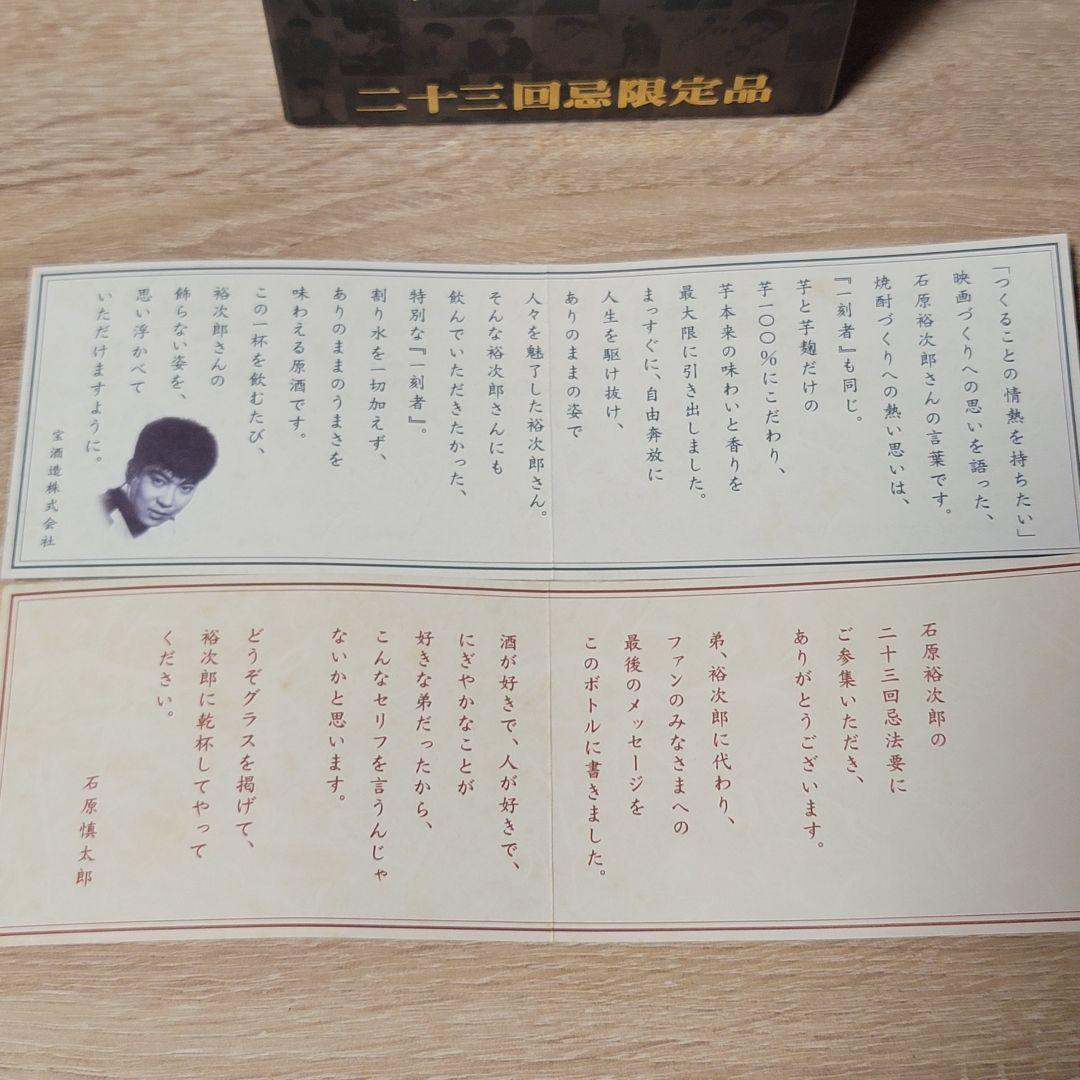 二十三回忌限定品
「つくることの情熱を持ちたい」
映画づくりへの思いを語った、
石原裕次郎さんの言葉です。
焼酎づくりへの熱い思いは、
『一刻者』も同じ。
芋と芋麹だけの
芋一〇〇％にこだわり、
芋本来の味わいと香りを
最大限に引き出しました。
まっすぐに、自由奔放に
人生を駆け抜け、
ありのままの姿で
人々を魅了した裕次郎さん。
そんな裕次郎さんにも
飲んでいただきたかった、
特別な『一刻者』。
割り水を一切加えず、
ありのままのうまさを
味わえる原酒です。
この一杯を飲むたび、
裕次郎さんの
飾らない姿を、
思い浮かべて
いただけますように。
宝酒造株式会社
石原裕次郎の
二十三回忌法要に
ご参集いただき、
ありがとうございます。
弟、裕次郎に代わり、
ファンのみなさまへの
最後のメッセージを
このボトルに書きました。
酒が好きで、人が好きで、
にぎやかなことが
好きな弟だったから、
こんなセリフを言うんじゃ
ないかと思います。
どうぞグラスを掲げて、
裕次郎に乾杯してやって
ください。
石原慎太郎